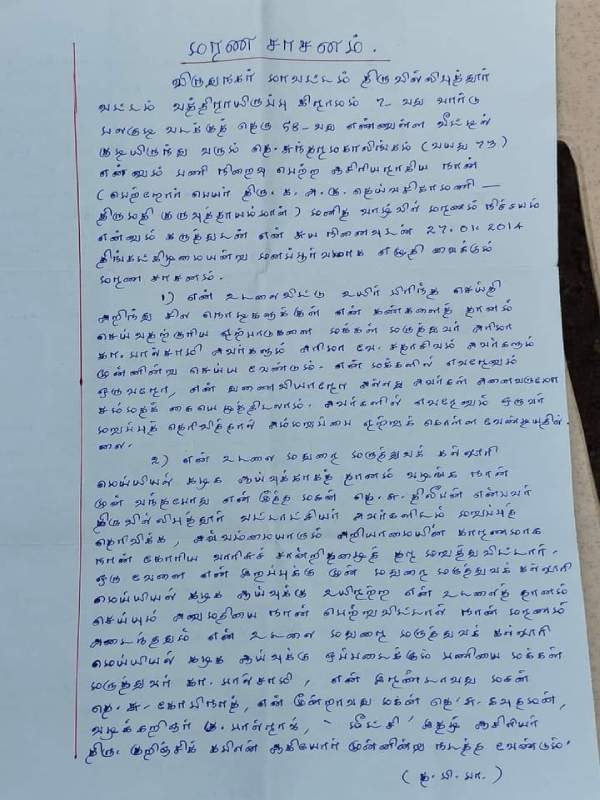 மரண சாசனம்.
விருதுநகர் மாவட்டம் திருவில்லிபுத்தூர்
வட்டம் வத்திராயிருப்பு கிராமம் 7-வது வார்டு
வடக்குத் தெரு 58-வது எண்ணுள்ள வீட்டில்
குடியிருந்து வரும் தெ. சுந்தரமகாலிங்கம் (வயது 73)
என்னும் பணி நிறைவு பெற்ற ஆசிரியராகிய நான்
(பெற்றோர் பெயர் திரு. க. அ. கு. தெய்வசிகாமணி —
திருமதி குருவுத்தாயம்மாள்) மனித வாழ்வில் மரணம் நிச்சயம்
என்னும் கருத்துடன் என் சுய நினைவுடன் 27.01.2014
திங்கட்கிழமையன்று மனப்பூர்வமாக எழுதி வைக்கும்
மரண சாசனம்.
1) என் உடலைவிட்டு உயிர் பிரிந்த செய்தி
அறிந்து சில நொடிகளுக்குள் என் கண்களைத் தானம்
செய்வதற்குரிய ஏற்பாடுகளை மக்கள் மருத்துவர் அரிமா
கா. பால்சாமி அவர்களும் அரிமா வே. சதாசிவம் அவர்களும்
முன்னின்று செய்ய வேண்டும். என் மக்களில் எவரேனும்
ஒருவரோ, என் துணைவியாரோ அல்லது அவர்கள் அனைவருமோ
சம்மதக் கையெழுத்திடலாம். அவர்களில் எவரேனும் ஒருவர்
மறுப்புத் தெரிவித்தால் அம்மறுப்பை ஏற்றுக் கொள்ள வேண்டியதில்
லை.
2) என் உடலை மதுரை மருத்துவக் கல்லூரி
மெய்யியல் கழக ஆய்வுக்காகத் தானம் வழங்க நான்
முன் வந்தபோது என் மூத்த மகன் தெ. சு. திலீபன் என்பவர்
திருவில்லிபுத்தூர் வட்டாட்சியர் அவர்களிடம் மறுப்புத்
தெரிவிக்க, அவ்வம்மையாரும் அறியாமையின் காரணமாக
நான் கோரிய வாரிசுச் சான்றிதழைத் தர மறுத்துவிட்டார்.
ஒரு வேளை என் இறப்புக்கு முன் மதுரை மருத்துவக் கல்லூரி
மெய்யியல் கழக ஆய்வுக்கு உயிரற்ற என் உடலைத் தானம்
செய்யும் அனுமதியை நான் பெற்றுவிட்டால் நான் மரணம்
அடைந்ததும் என் உடலை மதுரை மருத்துவக் கல்லூரி
மெய்யியல் கழக ஆய்வுக்கு ஒப்படைக்கும் பணியை மக்கள்
மருத்துவர் கா. பால்சாமி, என் இரண்டாவது மகன்
தெ. சு. கோபிநாத், என் மூன்றாவது மகன் தெ. சு. கவுதமன்,
வழக்கறிஞர் கு. பால்ராஜ், 'மீட்சி' இதழ் ஆசிரியர்
திரு. குறிஞ்சிக் கபிலன் ஆகியோர் முன்னின்று நடத்த வேண்டும்.
(த. பி. பா.)